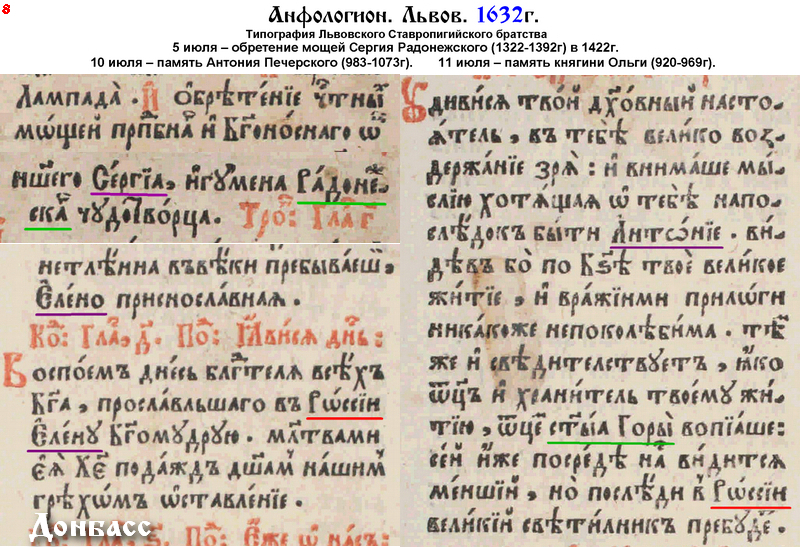 8
Анфологион. Львов. 1632г.
Типография Львовского Ставропигийского братства
5 июля – обретение мощей Сергия Радонежского (1322-1392г) в 1422г.
10 июля – память Антония Печерского (983-1073г). 11 июля – память княгини Ольги (920-969г).
Лампада̀ . И҆ ѻбрѣте́нїе чⷭ҇тны́
мѡ́щей прⷣпбна и҆ Бг҃оно́снаго ѿ
нш҃его Се́ргїа, и҆гу́мена Ра́доне́
скаⷢ чудотво́рца . Троⷫ: Глаⷭ г҃
нетлѣ́нна въвѣ́ки пребыва́еш,
Е҆ле́но приснославная .
Коⷣ: Глаⷭ, д҃. Поⷣ: Ꙗ҆ви́ся дн҃ь:
Воспое́мъ дне́сь благⷣтеля всѣ́хъ
Бг҃а , просла́вльшаго въ Рѡссїи
Е҆ле́ну Бг҃ому́друю . мл҃твами
еѧ̀ Хе҃ пода́ждъ дш҃амъ на́шимъ
грѣхѡ́мъ ѡ҆ставле́нїе .
Поⷣ: Е҆́же ѡ҆ на́съ:
Донбасс
Удиви́ся тво́й дх҃о́вный насто
ѧ́тель , въ тебѣ̀ вели́ко воз
держа́нїе зрѧ̀ : и҆ внима́ше мы́
слїю хотѧ́щая ѿ тебѣ̀ напо
слѣ́докъ бы́ти А҆нтѡ́нїе . ви
дѣвъ бо̀ по Бз҃ѣ твоѐ вели́кое
житїе , и҆ вра́жїими прило́ги
ника́коже непоколѣ́бима . тѣ́
же и҆ свѣди́телствуетъ , ꙗ҆́ко
ѿц҃ъ и҆ храни́тель твоему̀ жи
тїю , ѿч҃е ст҃ы́а Горы̀ вопїа́ше:
се́й и҆́же посредѣ̀ на́ ви́дится
ме́ншїй , но̀ послѣди в Рѡссїи
вели́кїй свѣти́лникъ пребу́де .